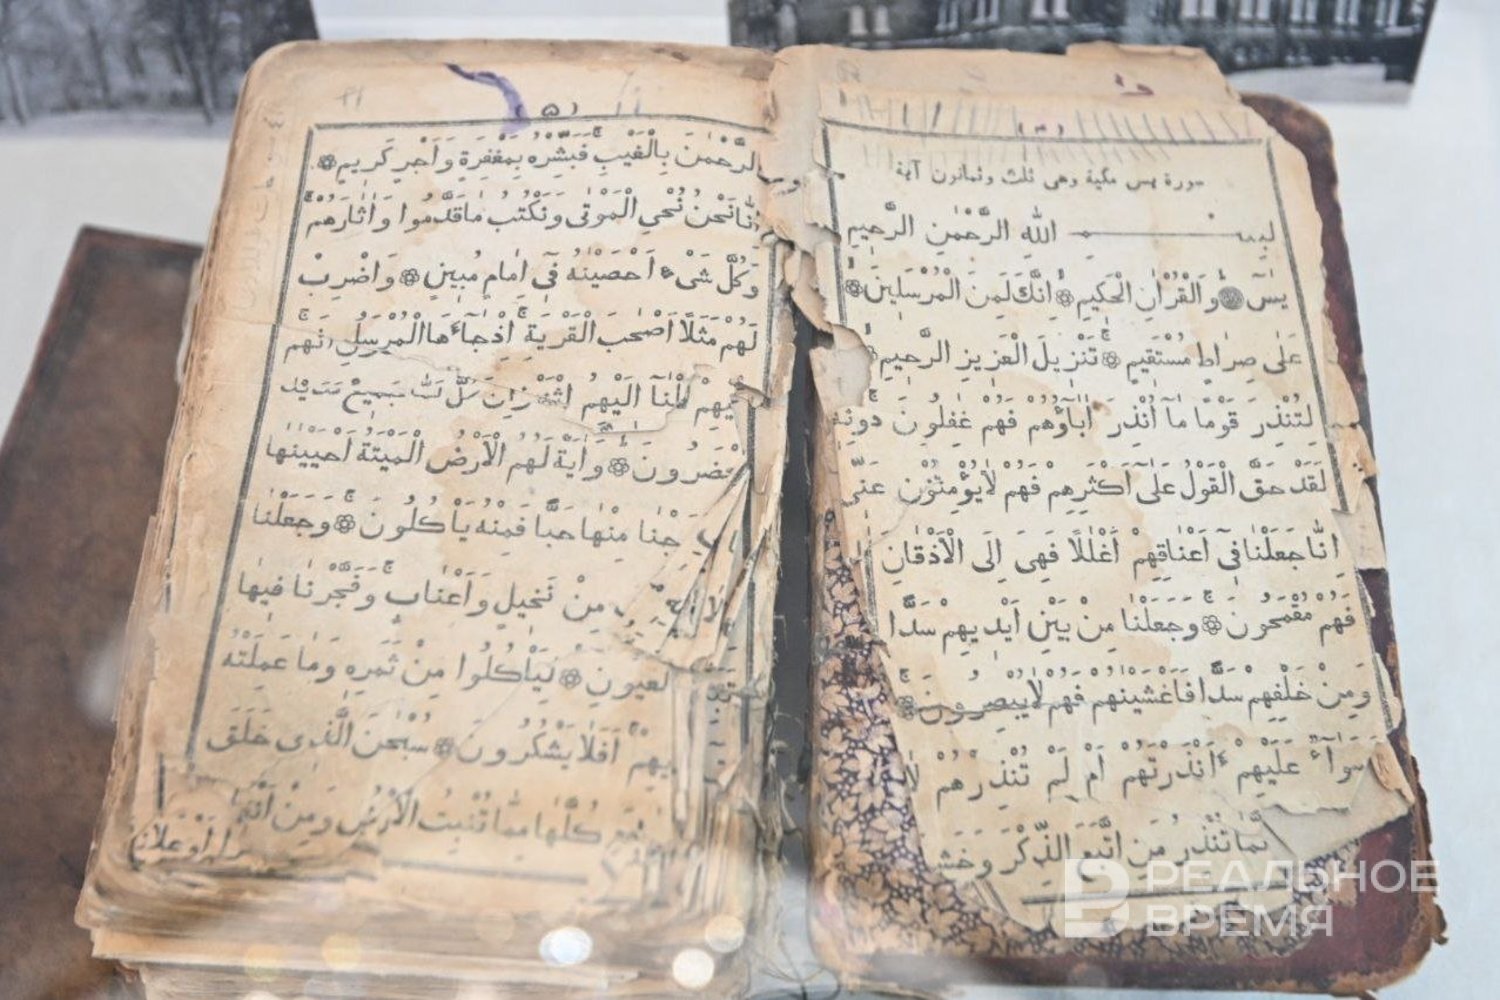 سورة يس مكية وهى ثلث وثمانون آية
بِسْمِ اللّٰهِ الرَّحْمٰنِ الرَّحِيمِ
يٰسٓ وَالْقُرْاٰنِ الْحَكِيمِ اِنَّكَ لَمِنَ الْمُرْسَلِينَ
عَلٰى صِرَاطٍ مُسْتَقِيمٍ تَنْزِيلَ الْعَزِيزِ الرَّحِيمِ
لِتُنْذِرَ قَوْمًا مَٓا اُنْذِرَ اٰبَٓاؤُهُمْ فَهُمْ غٰفِلُونَ
لَقَدْ حَقَّ الْقَوْلُ عَلٰٓى اَكْثَرِهِمْ فَهُمْ لَا يُؤْمِنُونَ
اِنَّا جَعَلْنَا فٖٓى اَعْنَاقِهِمْ اَغْلٰلًا فَهِىَ اِلَى الْاَذْقَانِ
فَهُمْ مُقْمَحُونَ وَجَعَلْنَا مِنْ بَيْنِ اَيْدٖيهِمْ سَدًّا
وَمِنْ خَلْفِهِمْ سَدًّا فَاَغْشَيْنٰهُمْ فَهُمْ لَا يُبْصِرُونَ
سَوَٓاءٌ عَلَيْهِمْ ءَاَنْذَرْتَهُمْ اَمْ لَمْ تُنْذِرْهُمْ لَا
تُنْذِرُ مَنِ اتَّبَعَ الذِّكْرَ وَخَشِىَ
(٥)
الرَّحْمٰنَ بِالْغَيْبِ فَبَشِّرْهُ بِمَغْفِرَةٍ وَاَجْرٍ كَرِيمٍ
اِنَّا نَحْنُ نُحْىِ الْمَوْتٰى وَنَكْتُبُ مَا قَدَّمُوا وَاٰثَارَهُمْ
وَكُلَّ شَىْءٍ اَحْصَيْنٰهُ فٖٓى اِمَامٍ مُبِينٍ وَاضْرِبْ
لَهُمْ مَثَلًا اَصْحٰبَ الْقَرْيَةِ اِذْ جَٓاءَهَا الْمُرْسَلُ
اِلَيْهِمُ اثْنَيْنِ
وَاٰيَةٌ لَهُمُ الْاَرْضُ الْمَيْتَةُ اَحْيَيْنٰهَا
مِنْهَا حَبًّا فَمِنْهُ يَاْكُلُونَ وَجَعَلْنَا
مِنْ نَخِيلٍ وَاَعْنَابٍ وَفَجَّرْنَا فِيهَا
الْعُيُونِ لِيَاْكُلُوا مِنْ ثَمَرِهٖ وَمَا عَمِلَتْهُ
اَفَلَا يَشْكُرُونَ سُبْحٰنَ الَّذٖى خَلَقَ
كُلَّهَا مِمَّا تُنْبِتُ الْاَرْضُ وَمِنْ
РЕАЛЬНОЕ
ВРЕМЯ